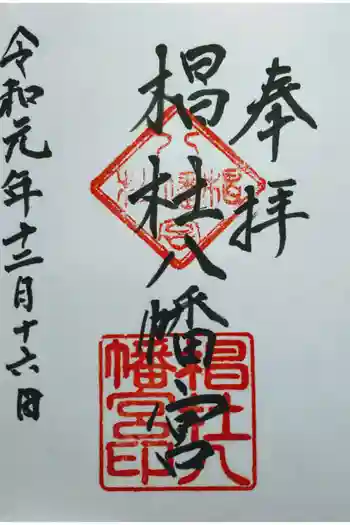 奉拝
椙杜八幡宮
令和元年十二月十六日
椙杜八
幡宮印